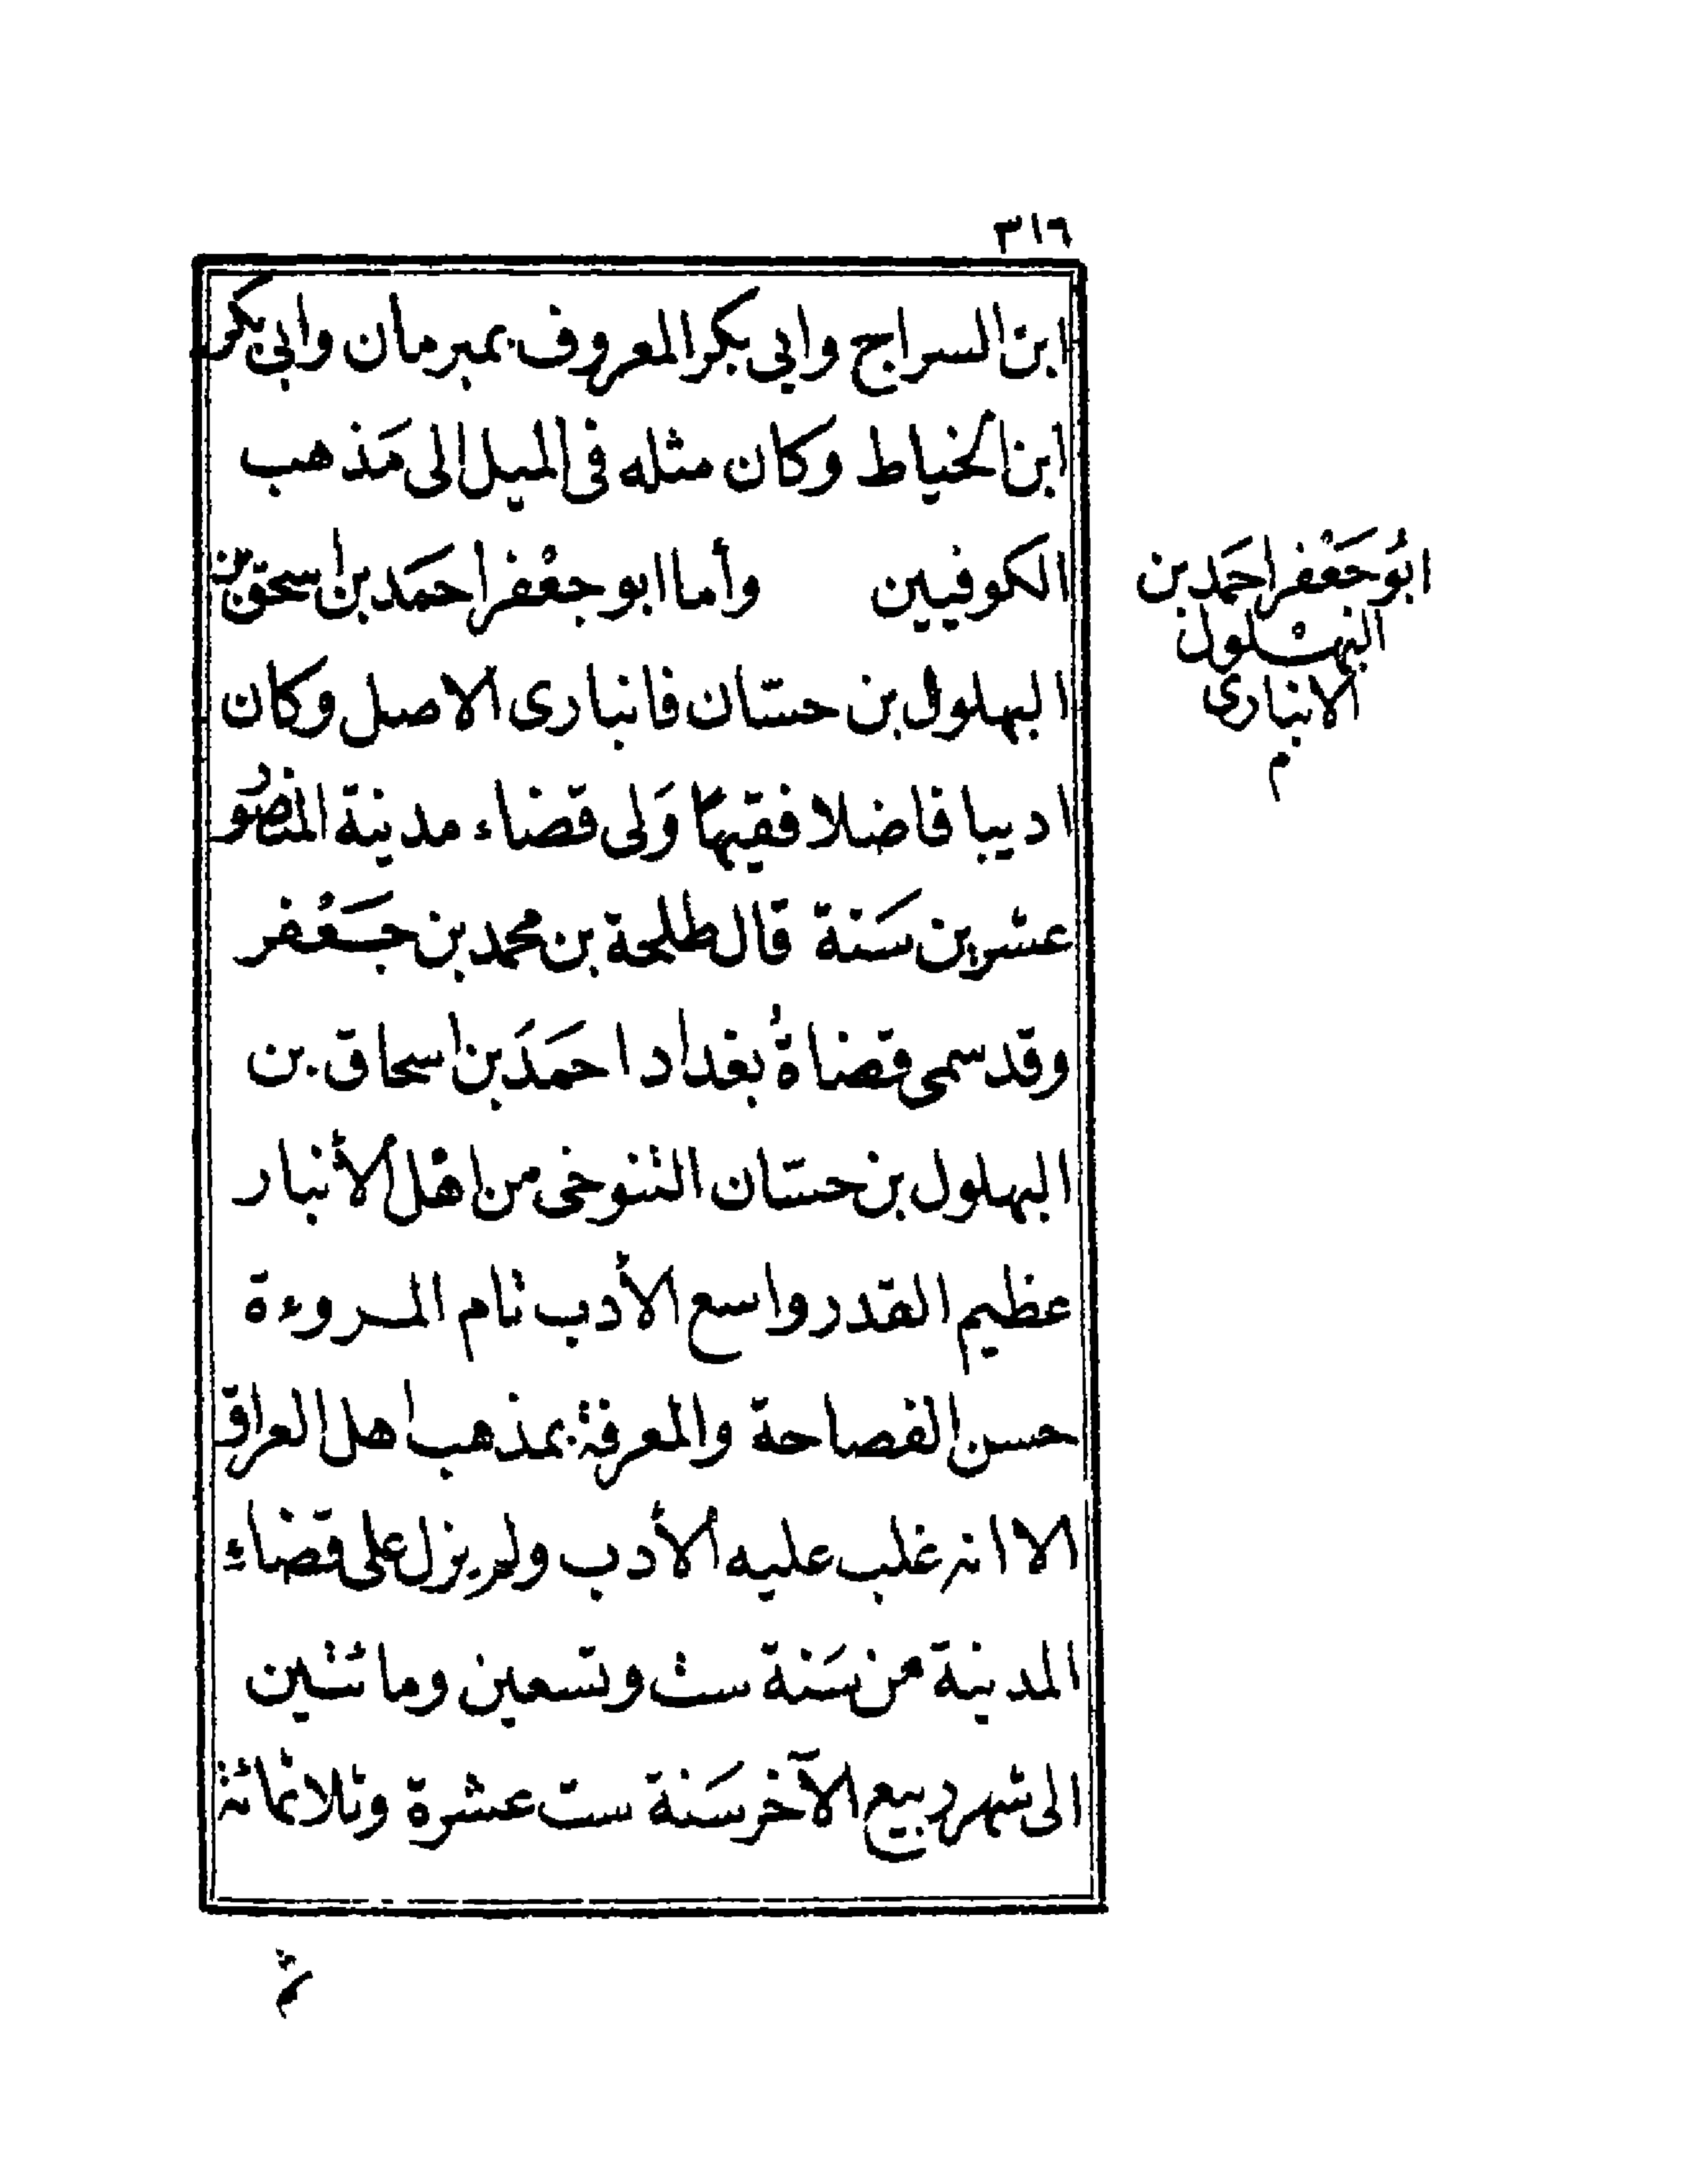 ٣١٦
ابن السراج وابي بكر المعروف بمبرمان وابي بكر
ابن الخياط وكان مثله فى الميل الى مَذهب
الكوفيين وأما ابو جعْفر احمَد بن اسحق بن
البهلول بن حسّان فانبارى الاصل وكان
اديبا فاضلا فقيهًا وَلى قضاء مدينة المنصُور
عشرين سَنة قال طلحة بن محمد بن جَعْفر
وقد سمى قضاةُ بغداد احمَدَ بن اسحاق بن
البهلول بن حسّان التنوخى من اهْل الأنبار
عظيم القدر واسع الأدب تام المروءة
حسن الفصاحة والمعرفة بمذهب اهل العراق
الا انه غلب عليه الأدب ولم يزل على قضاءِ
المدينة من سَنة ست وتسعين ومائتين
الى شهر ربيع الآخر سَنة ست عشرة وثلاثمائة
ابُو جَعْفر احمَد بن
البهْلول
الانبارى
م
ثم